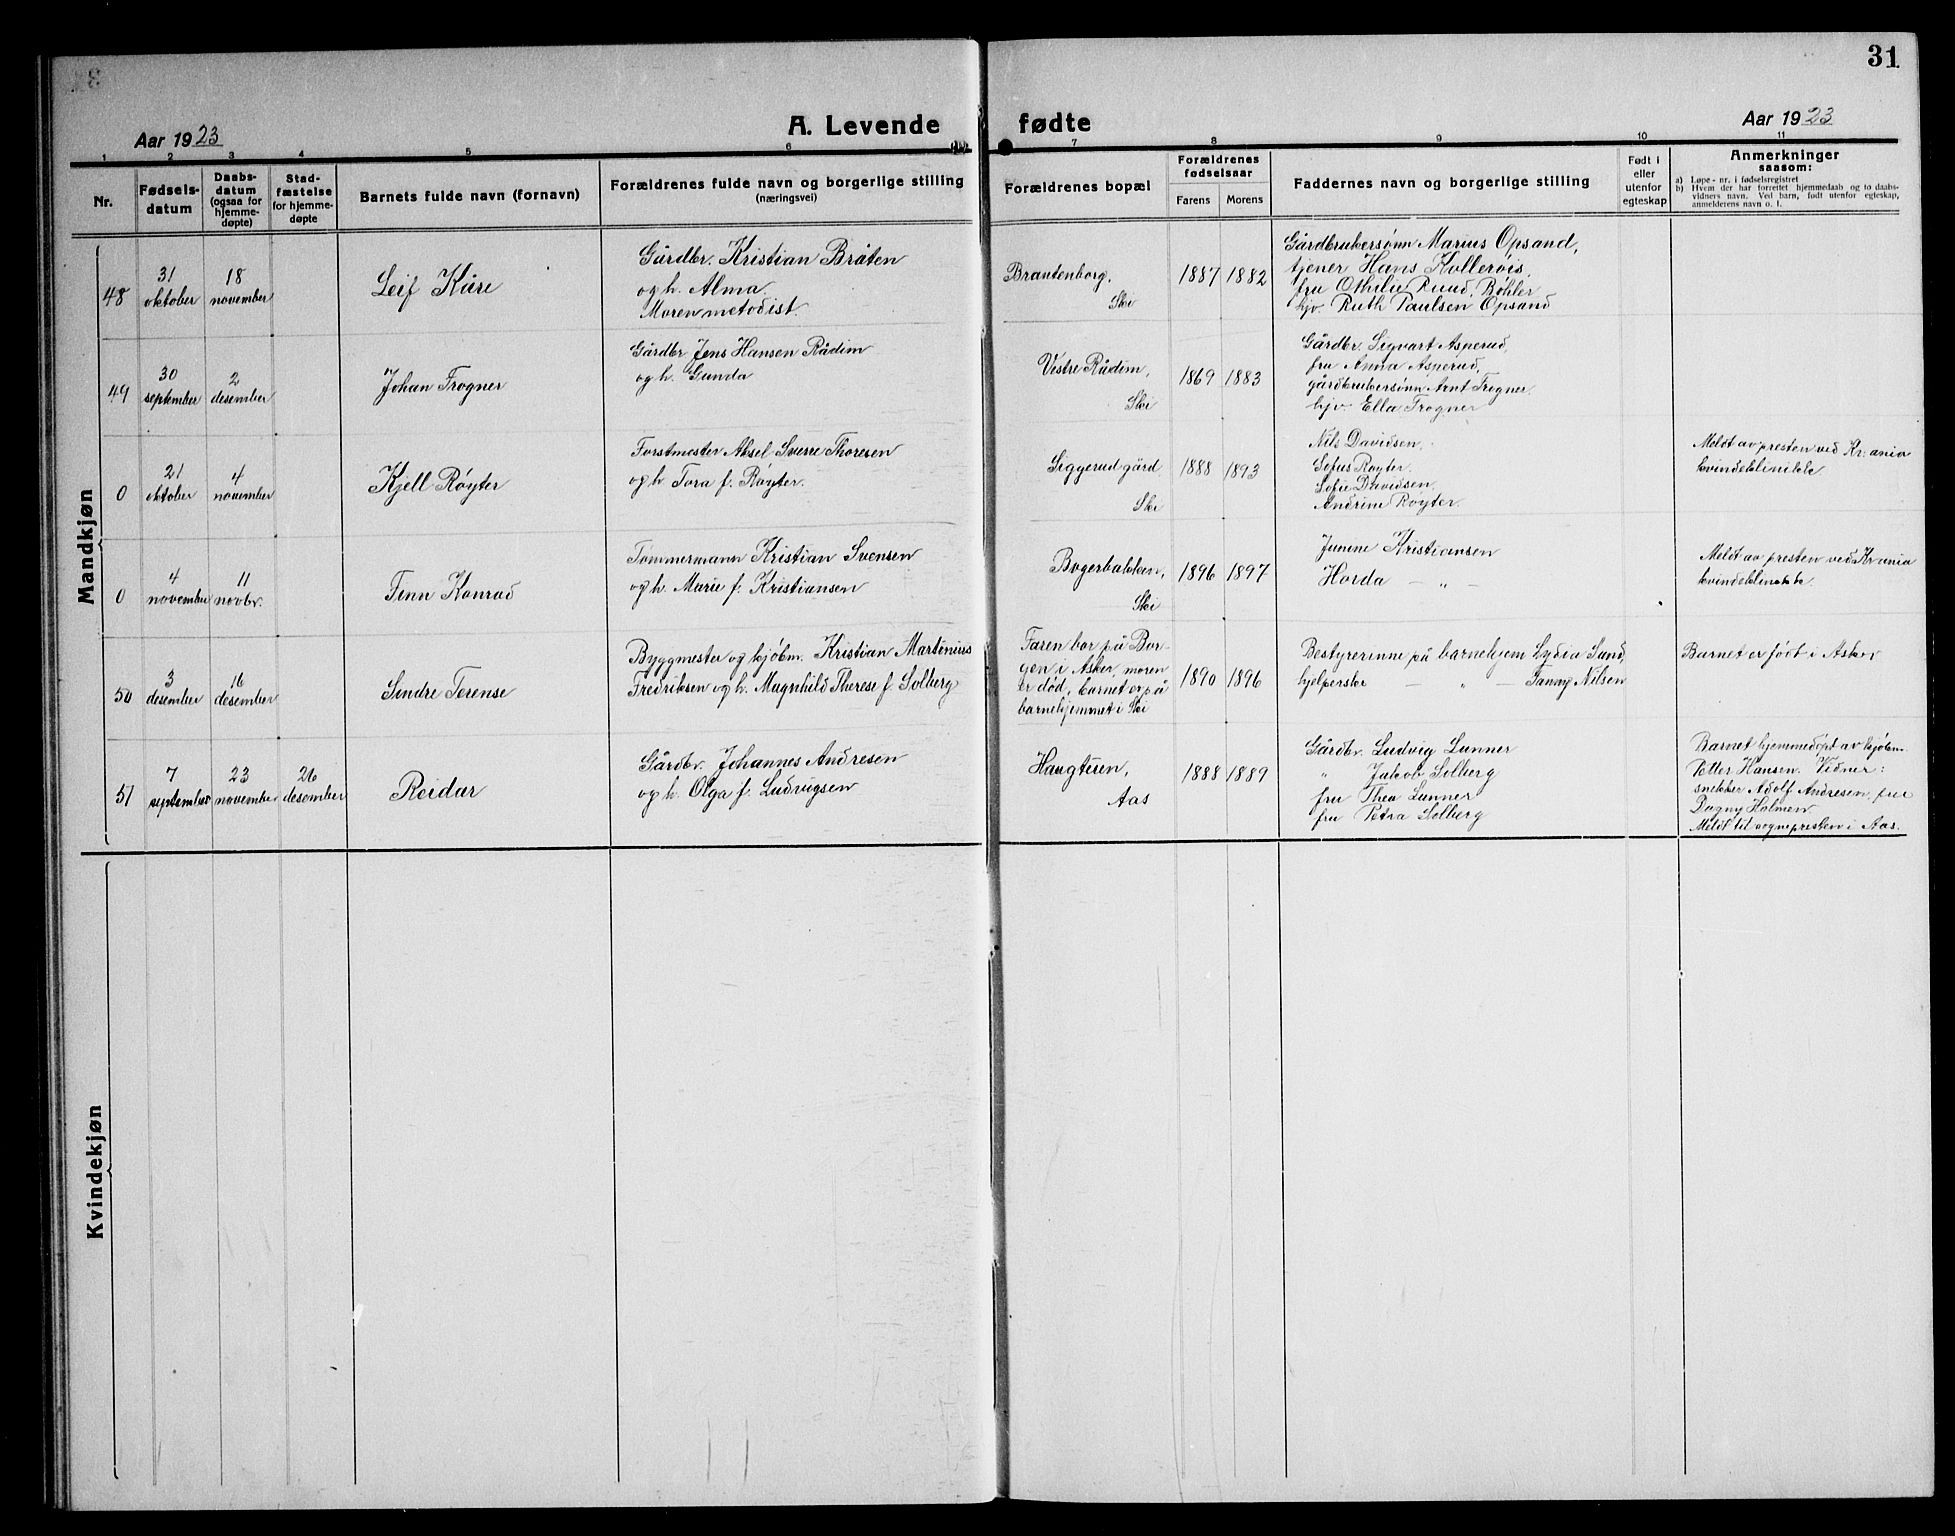 31
Aar 1923
A. Levende fødte
Aar 1923
1 2 3 4 5 6 7 8 9 10 11
Nr.
Fødselsdatum
Daabsdatum (ogsaa for hjemmedøpte)
Stadfæstelse for hjemmedøpte
Barnets fulde navn (fornavn)
Forældrenes fulde navn og borgerlige stilling
(næringsvei)
Forældrenes bopæl
Forældrenes fødselsaar
Farens Morens
Faddernes navn og borgerlige stilling
Født i eller utenfor egteskap
Anmerkninger
saasom:
a) Løpe-nr. i fødselsregistret
b) Hvem der har forrettet hjemmedaab og to daabsvidners navn. Ved barn, født utenfor egteskap, anmelderens navn o. l.
Mandkjøn
48
31 oktober
18 november
Leif Kåre
Gårdbr. Kristian Bråten
og h. Alma.
Moren metodist.
Brantenborg,
Ski
1887 1882
Gårdbrukersønn Marius Opsand,
tjener Hans Kollerøis,
fru Othilie Ruud, Bøhler
hjv. Ruth Paulsen Opsand
49
30 september
2 desember
Johan Trogner
Gårdbr. Jens Hansen Rådim
og h. Gunda
Vestre Rådim,
Ski
1869 1883
Gårdbr. Sigvart Asperud,
fru Anna Asperud,
gårdbrukersønn Arnt Trogner.
hjv. Ella Trogner
0
21 oktober
4 november
Kjell Røyter
Forstmester Aksel Sverre Thoresen
og h. Tora f. Røyter.
Siggerud gård
Ski
1888 1893
Nils Davidsen,
Sofus Røyter.
Sofie Davidsen,
Andrine Røyter.
Meldt av presten ved Kr.ania
kvindeklinikk
0
4 november
11 novbr.
Finn Konrad
Tømmermann Kristian Svensen
og h. Marie f. Kristiansen
Bogerbakken,
Ski
1896 1897
Junine Kristiansen
Horda — „ —
Meldt av presten ved Kr.ania
50
3 desember
16 desember
Sindre Terense
Byggmester og kjøbm. Kristian Martinius
Fredriksen og h. Magnhild Therese f. Solberg
Faren bor på Bor-
gen i Asker, moren
er død, barnet er på
barnehjemmet i Ski
1890 1896
Bestyrerinne på barnehjem Lydia Sand,
hjelperske — „ — Fanny Nilsen
Barnet er født i Asker
51
7 september
23 november
26 desember
Reidar
Gårdbr. Johannes Andresen
og h. Olga f. Ludvigsen
Haugteren,
Aas
1888 1889
Gårdbr. Ludvig Lunner
„ Jakob Solberg
fru Thea Lunner
fru Petra Solberg
Barnet hjemmedøpt av kjøbm.
Petter Hansen. Vidner:
snekker Adolf Andresen, fru
Dagny Holmen
Meldt til sognepresten i Aas.
Kvindekjøn